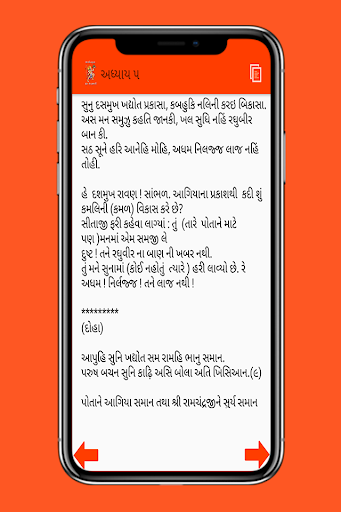 અધ્યાય ૫
સુનુ દસમુખ ખદ્યોત પ્રકાસા, કબહુકિ નલિની કરઇ બિકાસા.
અસ મન સમુઝુ કહતિ જાનકી, ખલ સુધિ નહિં રઘુબીર
બાન કી.
સઠ સૂને હરિ આનેહિ મોહિ, અધમ નિલજ્જ લાજ નહિં
તોહી.
હે દશમુખ રાવણ ! સાંભળ. આગિયાના પ્રકાશથી કદી શું
કમલિની (કમળ) વિકાસ કરે છે?
સીતાજી ફરી કહેવા લાગ્યાં : તું (તારે પોતાને માટે
પણ )મનમાં એમ સમજી લે
દુષ્ટ ! તને રઘુવીર ના બાણ ની ખબર નથી.
તું મને સુનામાં (કોઈ નહોતું ત્યારે ) હરી લાવ્યો છે. રે
અધમ ! નિર્લજ્જ ! તને લાજ નથી !
*********
(દોહા)
આપુહિ સુનિ ખદ્યોત સમ રામહિ ભાનુ સમાન.
પરુષ બચન સુનિ કાઢ઼િ અસિ બોલા અતિ ખિસિઆન.(૯)
પોતાને આગિયા સમાન તથા શ્રી રામચંદ્રજીને સુર્ય સમાન